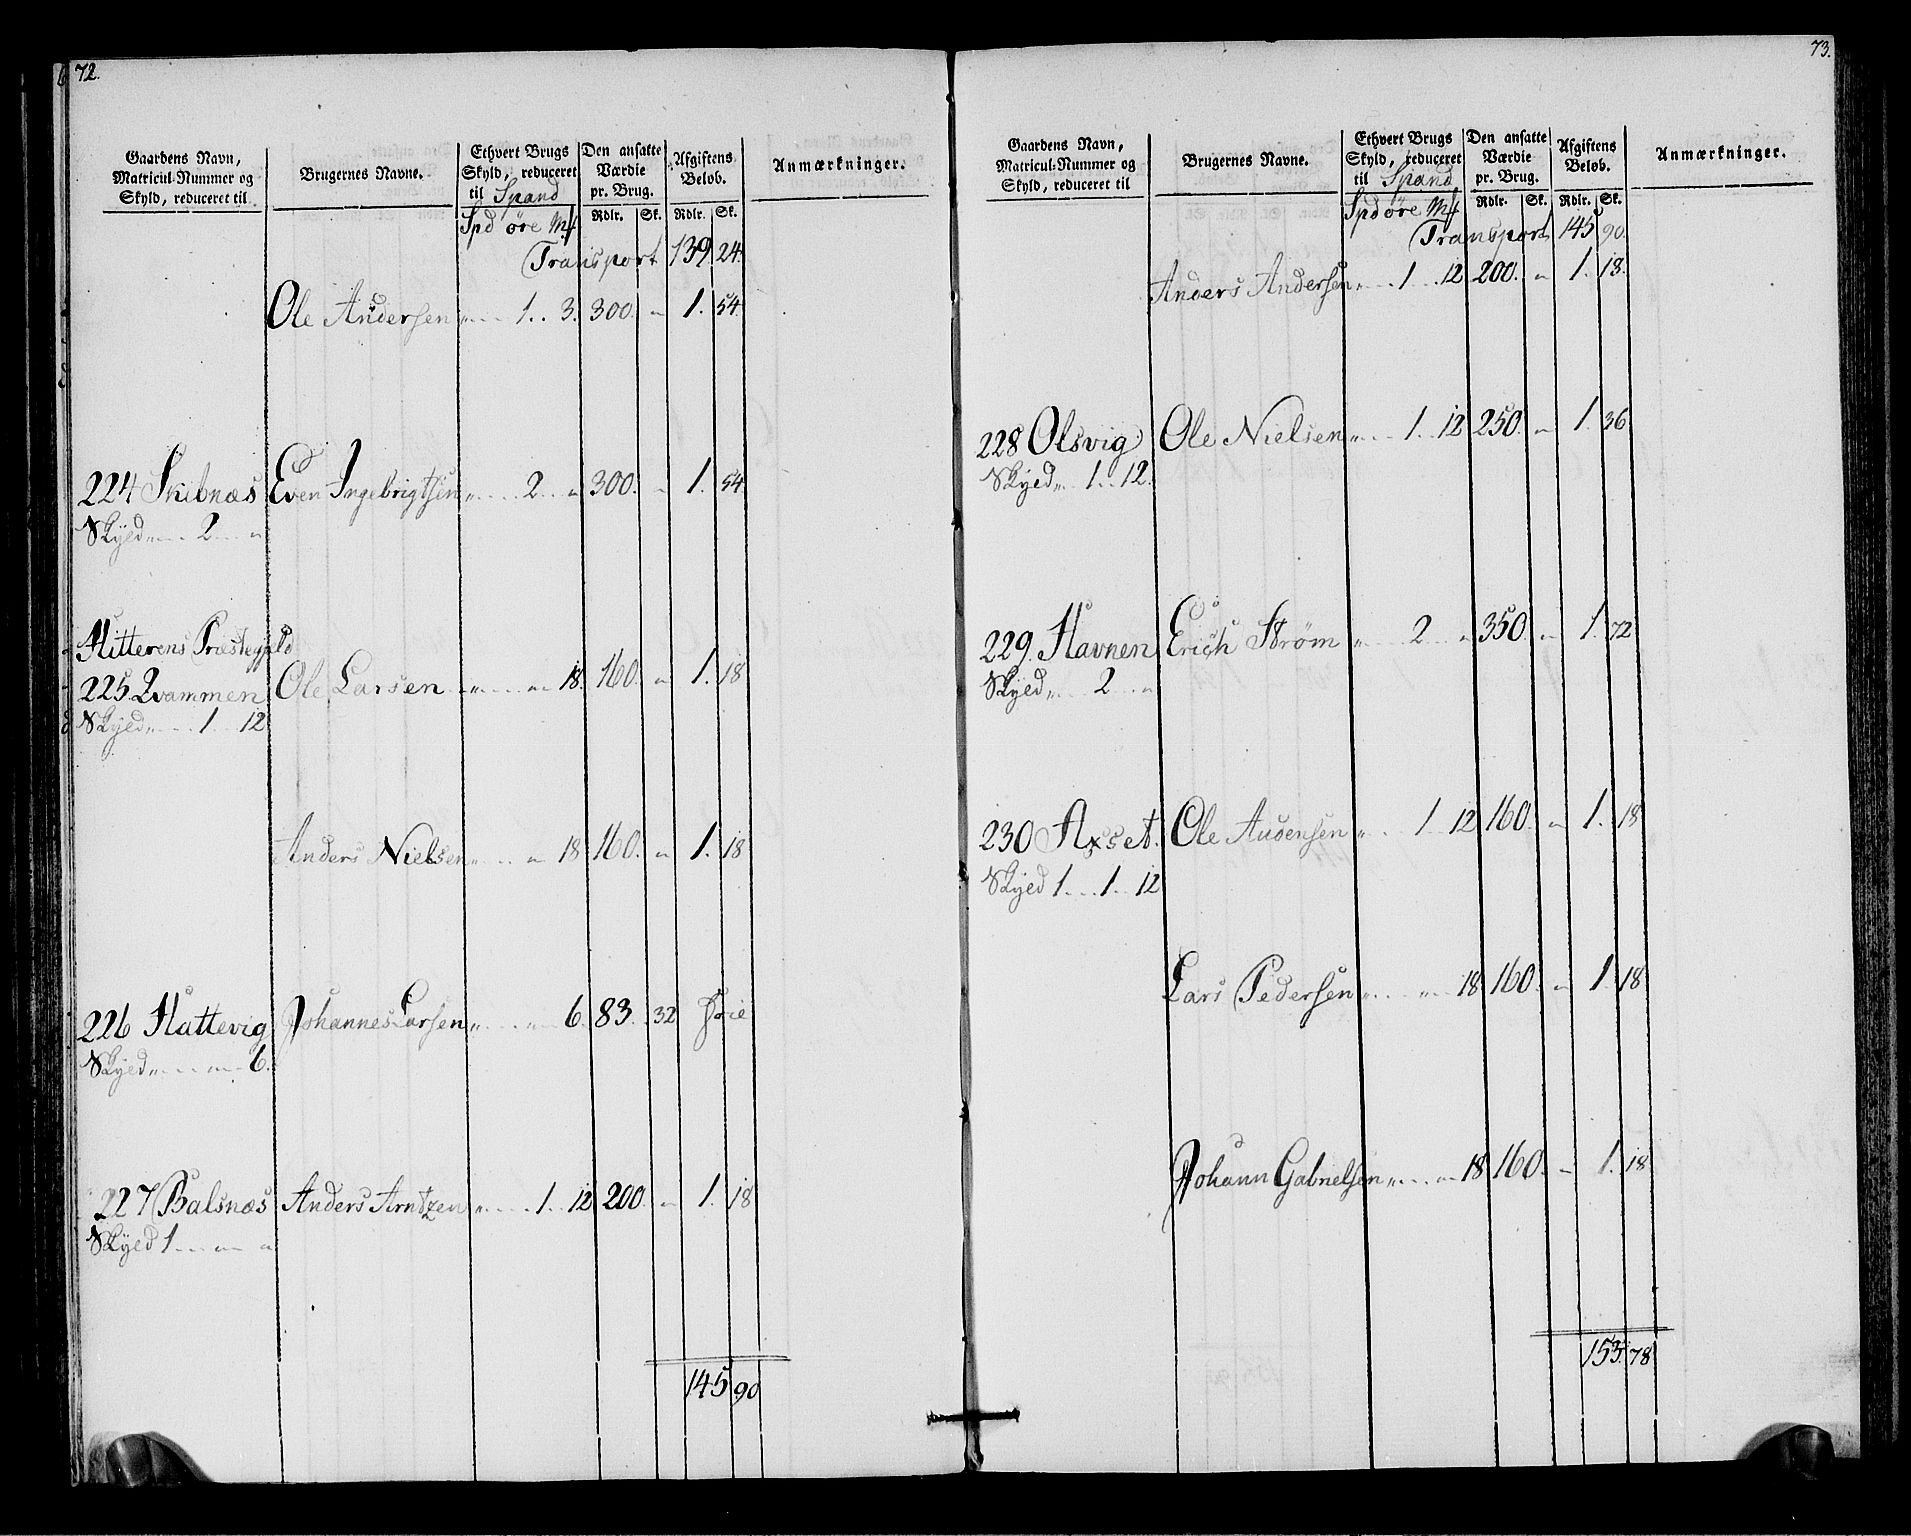 72.
Gaardens Navn, Matricul-Nummer og Skyld, reduceret til
Brugernes Navne.
Ethvert Brugs Skyld, reduceret til Spand
Spd öre Mk
Den ansatte Værdie pr. Brug.
Rdlr. Sk.
Afgiftens Beløb.
Rdlr. Sk.
Anmærkninger.
Transport 139. 24.
Ole Andersen „ 1. 3. 300. „ 1. 54.
224 Skibnæs Even Ingebrigtsen „ 2 „ 300. „ 1. 54
Skyld „ 2 „
Hitterens Præstegjeld
225. Qvammen Ole Larsen „ „ 18. 160. „ 1. 18
Skyld „ 1 12
Anders Nielsen „ „ 18 160. „ 1. 18
226 Hattevig Johannes Larsen „ „ 6. 83. 32 Frie
Skyld „ „ 6.
227 Balsnæs Anders Arntzen „ 1. 12 200. „ 1. 18
Skyld 1 „ „
145 90
73.
Gaardens Navn, Matricul-Nummer og Skyld, reduceret til
Brugernes Navne.
Ethvert Brugs Skyld, reduceret til Spand
Spd öre Mk
Den ansatte Værdie pr. Brug.
Rdlr. Sk.
Afgiftens Beløb.
Rdlr. Sk.
Anmærkninger.
Transport 145 90.
Anders Andersen „ 1 12 200. „ 1. 18.
228 Olsvig Ole Nielsen „ 1. 12 250. „ 1. 36
Skyld „ 1. 12.
229. Havnen Erich Strøm „ 2 „ 350. „ 1. 72
Skyld „ 2 „
230 Axset. Ole Audensen „ 1 12 160. „ 1. 18
Skyld 1 1 12
Lars Pedersen „ „ 18 160. „ 1. 18
Johann Gabrielsen „ „ 18 160. „ 1. 18
153. 78